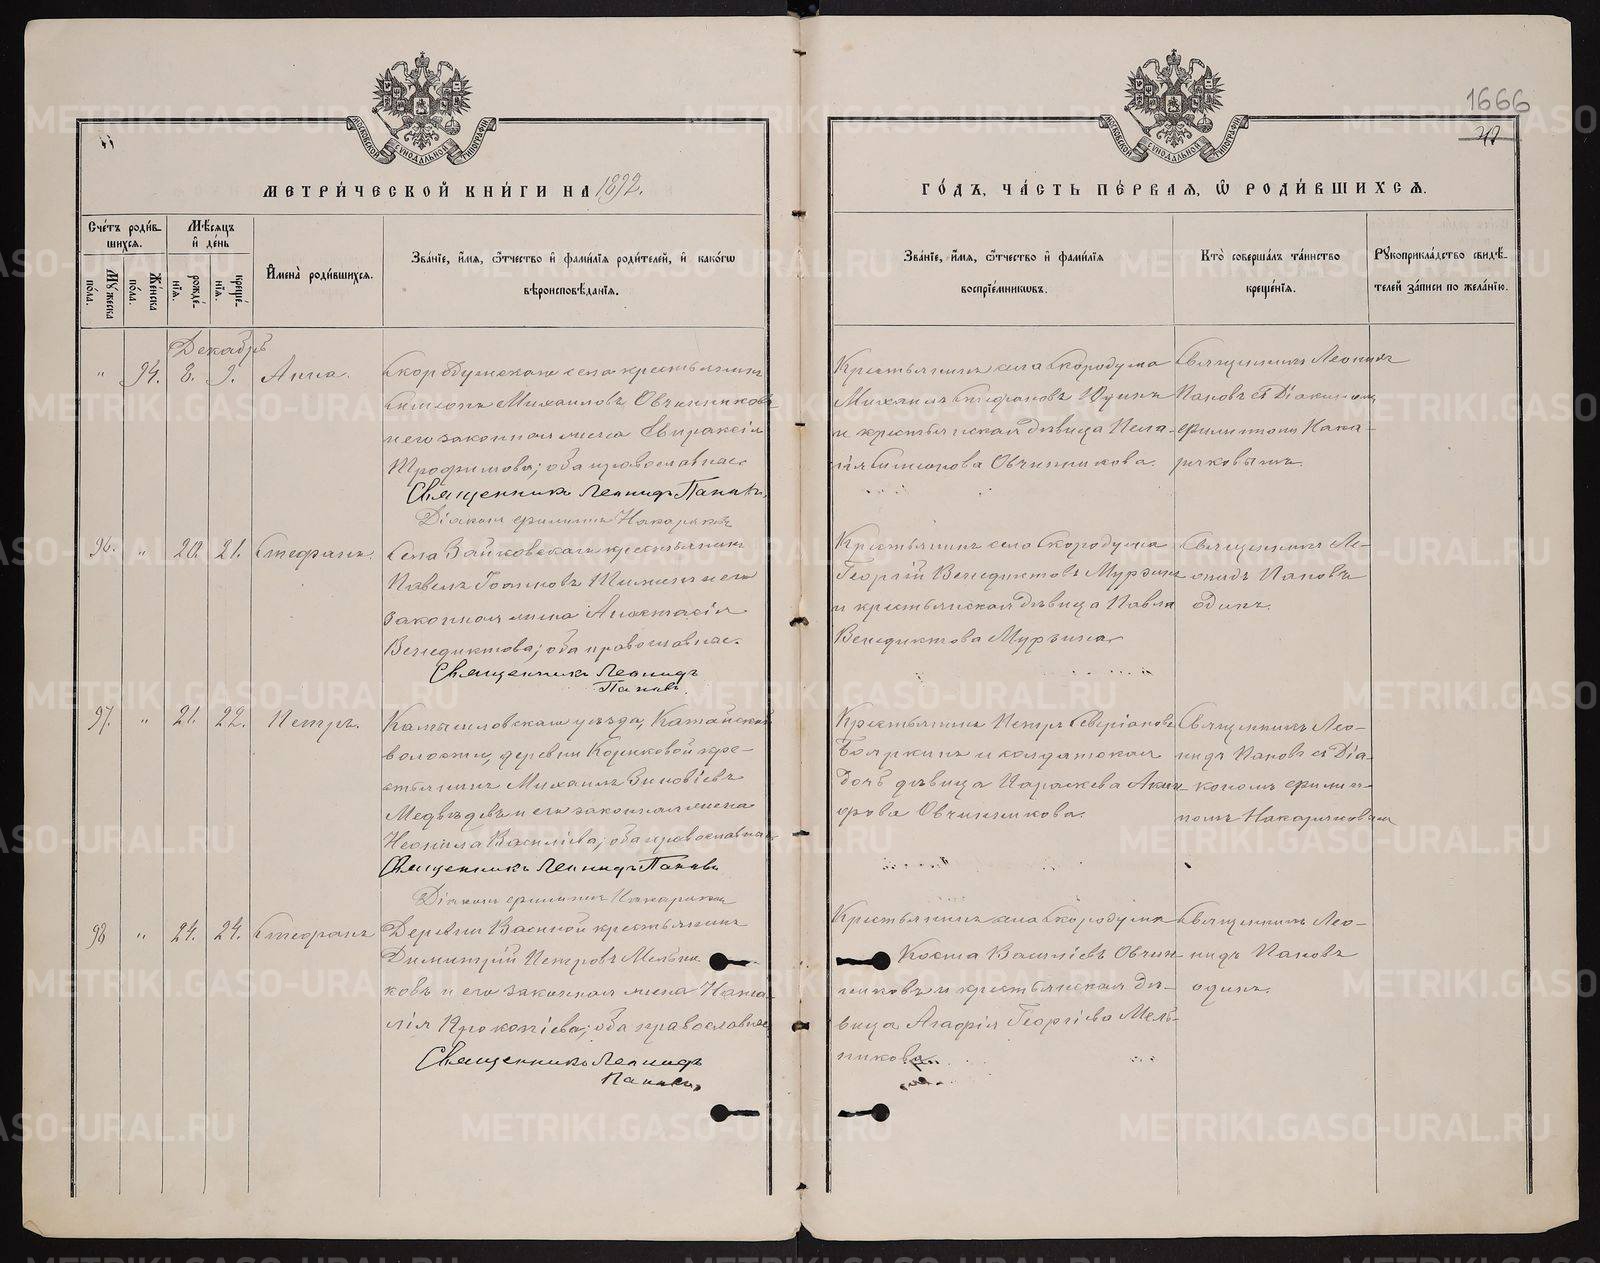 1666
МЕТРИ́ЧЕСКОЙ КНИ́ГИ НА 1892.
ГО́ДЪ, ЧА́СТЬ ПЕ́РВАЯ, Ѿ РОДИ́ВШИХСЯ.
МОСКОВСКОЙ СѴНОДАЛЬНОЙ ТИПОГРАФІИ
МОСКОВСКОЙ СѴНОДАЛЬНОЙ ТИПОГРАФІИ
Сче́тъ роди́в-
шихся.
Му́жеска по́ла.
Же́нска по́ла.
Мѣ́сяцъ
и҆ де́нь
рожде́-
нїя.
креще́-
нїя.
И҆мена̀ роди́вшихся.
Зва́нїе, и҆́мя, ѻ҆́тчество и҆ фами́лїя роди́телей, и҆ како́гѡ
вѣроисповѣ́данїя.
Зва́нїе, и҆́мя, ѻ҆́тчество и҆ фами́лїя
воспрїе́мникѡвъ.
Кто̀ соверша́лъ та́инство
креще́нїя.
Рꙋкоприкла́дство свидѣ́-
телей за́писи по жела́нїю.
Декабрь
" 94. 8. 9. Анна.
Скородумскаго села крестьянинъ
Симеонъ Михаиловъ Овчинниковъ
и его законная жена Евпраксія
Трофимова; оба православные.
Священникъ Леонидъ Пановъ.
Діаконъ Филиппъ Накаряковъ
Крестьянинъ села Скородума
Михаилъ Стефановъ Юдинъ
и крестьянская дѣвица Пела-
гія Симеонова Овчинникова.
Священникъ Леонидъ
Пановъ съ Діакономъ
Филиппомъ Нака-
ряковымъ.
96. " 20. 21. Стефанъ.
Села Зайковскаго крестьянинъ
Павелъ Іоанновъ и его
законная жена Анастасія
Венедиктова; оба православные.
Священникъ Леонидъ
Пановъ.
Крестьянинъ села Скородума
Георгій Венедиктовъ Мурзинъ
и крестьянская дѣвица Павла
Венедиктова Мурзина.
Священникъ Ле-
онидъ Пановъ
одинъ.
97. " 21. 22. Петръ.
Камышловскаго уѣзда, Катайской
волости, деревни Корюковой кре-
стьянинъ Михаилъ Зиновіевъ
Медвѣдевъ и его законная жена
Неонила Василіева; оба православные.
Священникъ Леонидъ Пановъ
Діаконъ Филиппъ Накаряковъ
Крестьянинъ Петръ Северіановъ
Бояркинъ и солдатская
дочь дѣвица Параскева
Овчинникова.
Священникъ Лео-
нидъ Пановъ съ Діа-
кономъ Филип-
помъ Накаряковымъ
98 " 24. 24. Стефанъ
Деревни крестьянинъ
Димитрій Петровъ Мельни-
ковъ и его законная жена Ната-
лія Прокопіева; оба православные
Священникъ Леонидъ
Пановъ.
Крестьянинъ села Скородума
Косма Василіевъ Овчин-
никовъ и крестьянская дѣ-
вица Агафія Георгіева Мель-
никова.
Священникъ Лео-
нидъ Пановъ
одинъ.
METRIKI.GASO-URAL.RU